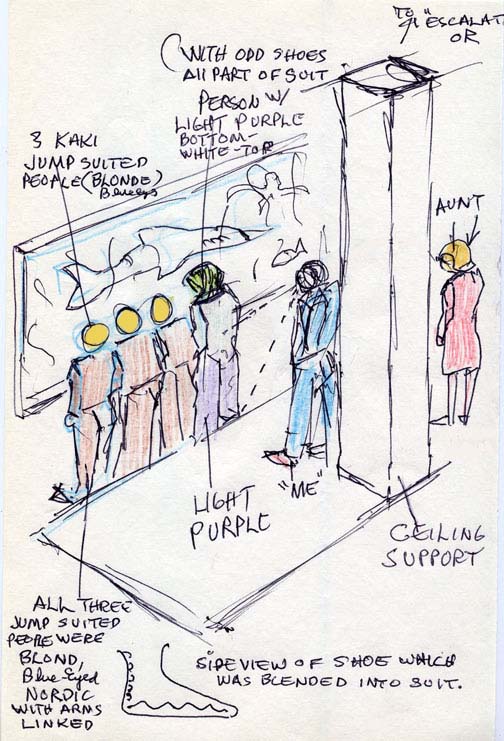 TO
"ESCALAT
OR
WITH ODD SHOES
All PART OF SUIT
PERSON W/
LIGHT PURPLE
BOTTOM-
WHITE-TOP
3 KAKI
JUMP SUITED
PEOPLE (BLONDE)
Blue eyes
AUNT
"ME"
LIGHT
PURPLE
CEILING
SUPPORT
ALL THREE
JUMP SUITED
PEOPLE WERE
BLOND,
Blue-Eyed
NORDIC
WITH ARMS
LINKED
SIDEVIEW OF SHOE WHICH
WAS BLENDED INTO SUIT.